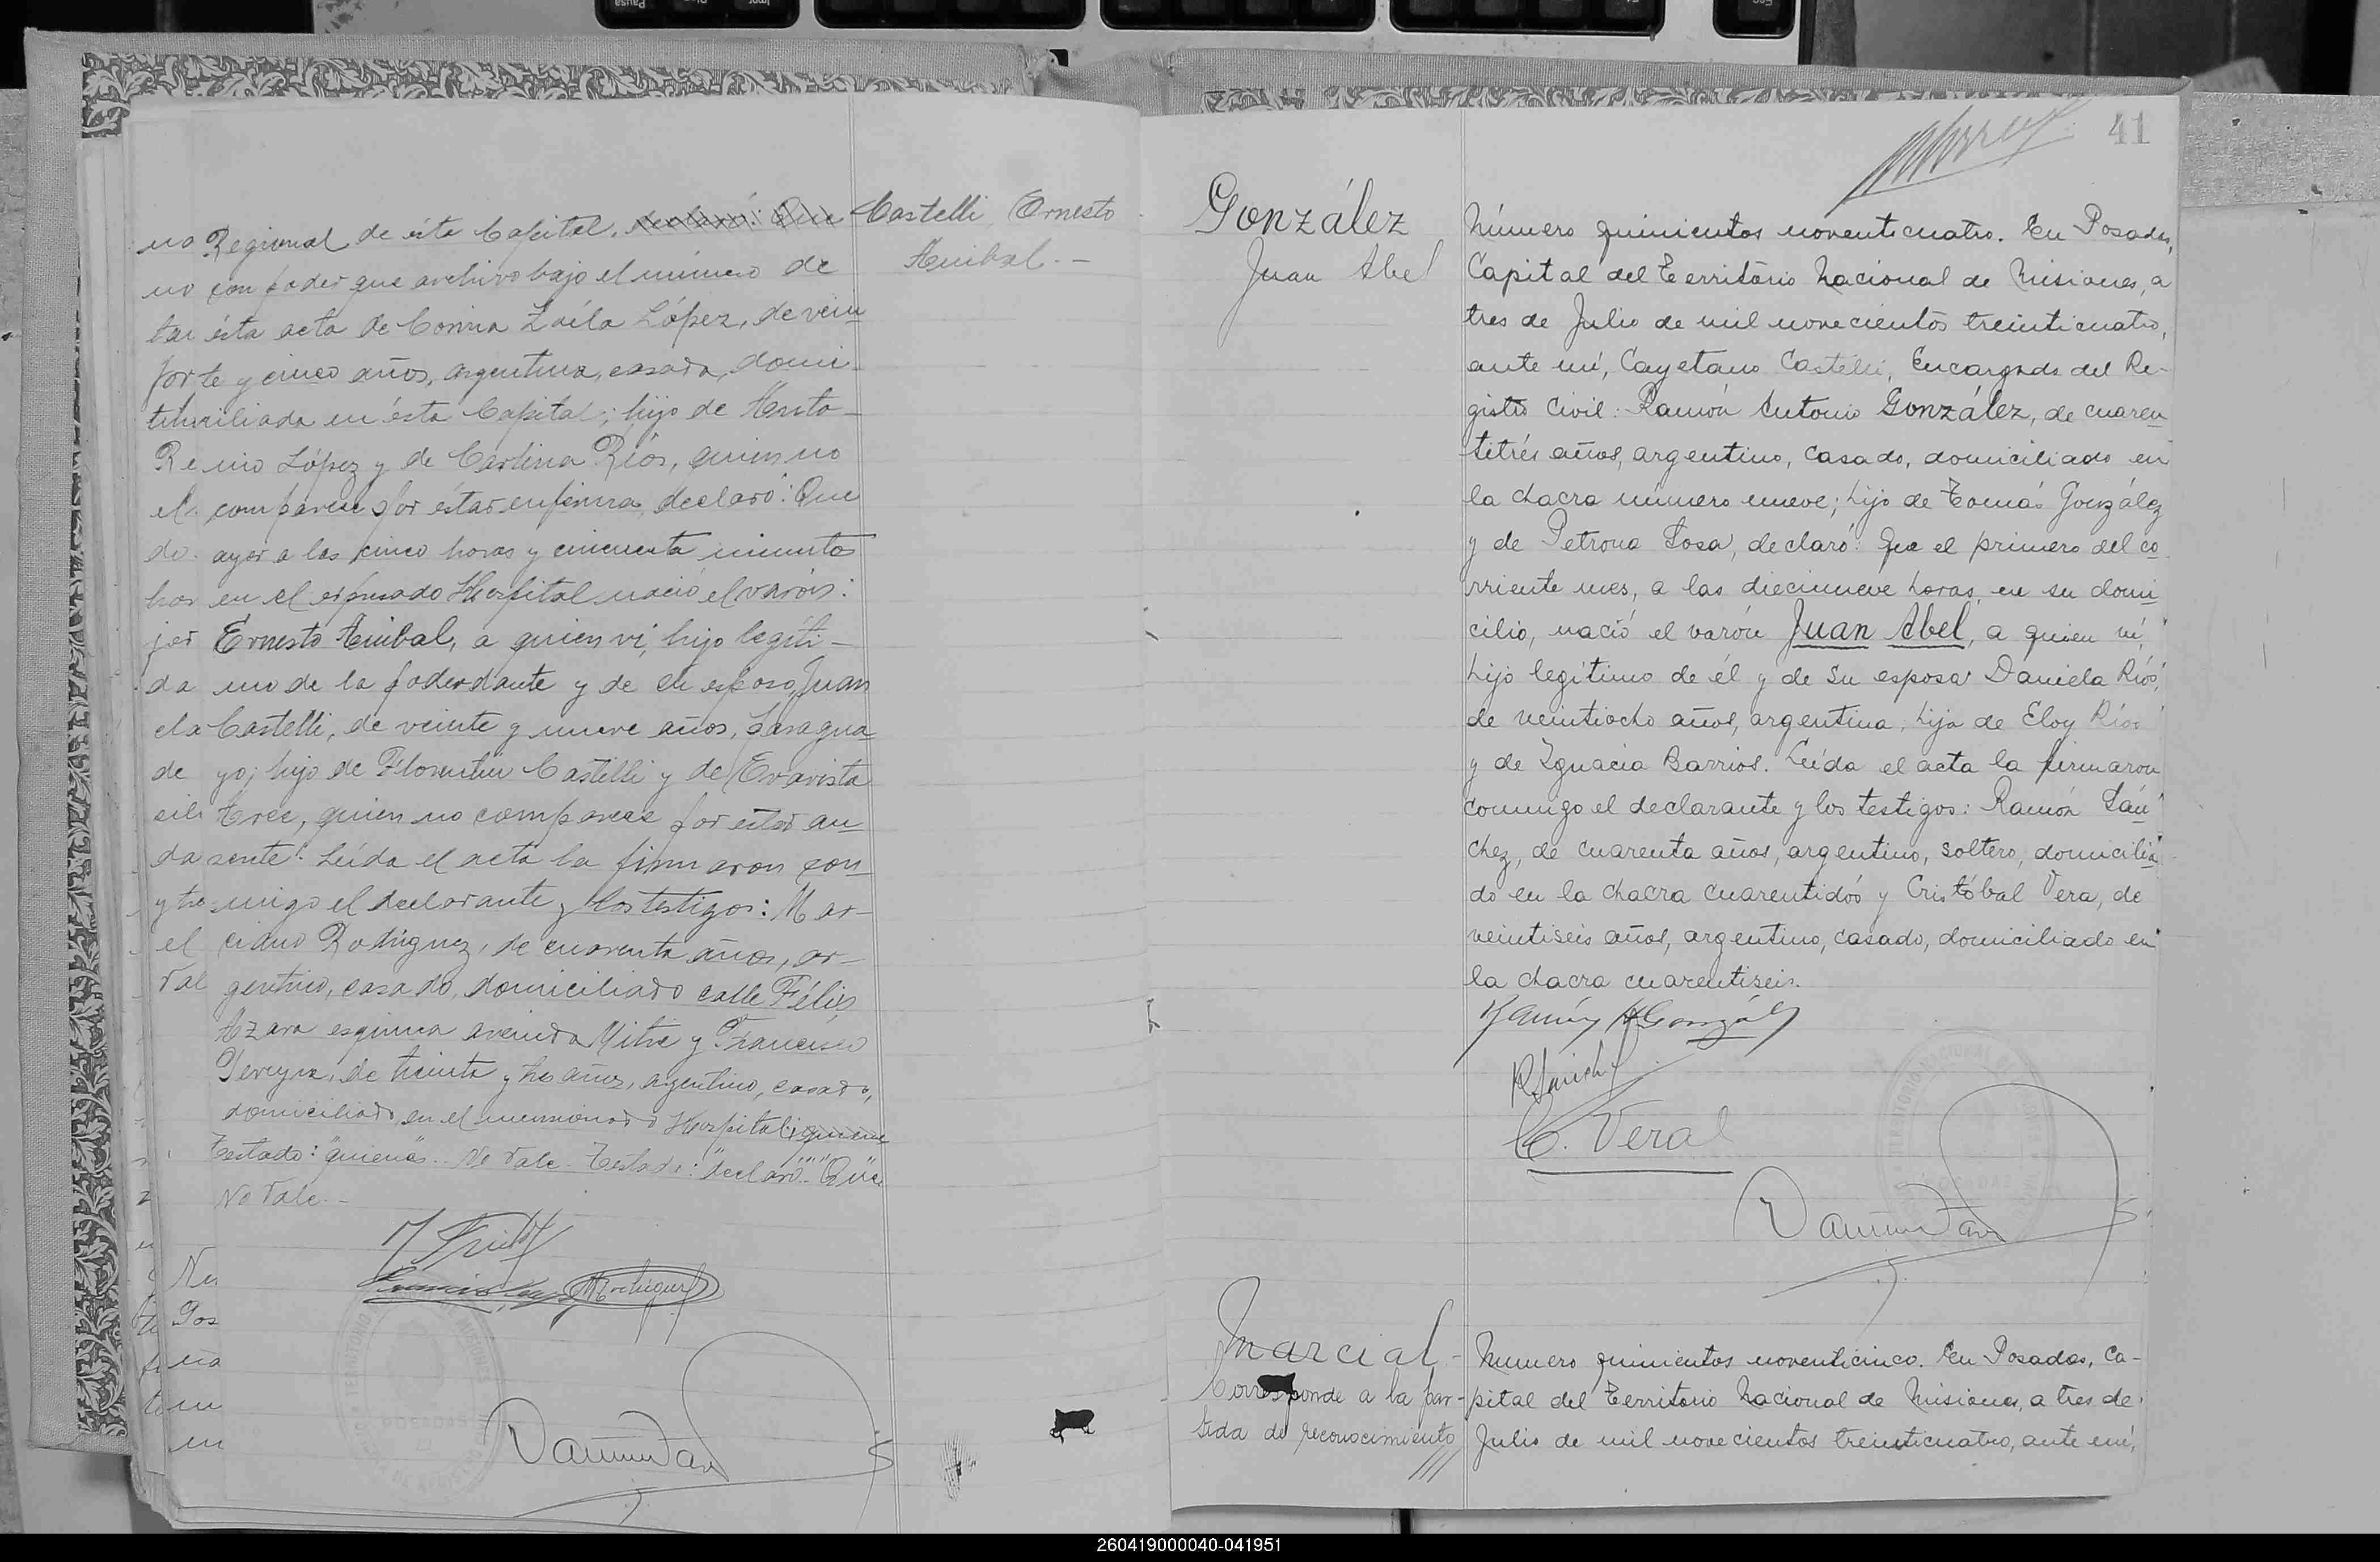 no Regional de ésta Capital, declaró: Que
no con poder que archivo bajo el número de
ésta acta de Corina Zoila López, de vein
te y cinco años, argentina, casada, domi-
ciliada en ésta Capital; hijo de
López y de Carlina Ríos, quien no
comparece por estar enferma, declaró: Que
ayer a las cinco horas y cincuenta minutos
en el expresado Hospital nació el varón:
Ernesto Anibal, a quien ví, hijo legíti-
mo de la poderdante y de su esposo, Juan
Castelli, de veinte y nueve años, paragua
yo; hijo de Florentin Castelli y de Evarista
Arce, quien no comparece por estar au
sente. Leída el acta la firmaron con
migo el declarante y los testigos: Mar-
ciano Rodriguez, de cuarenta años, ar-
gentino, casado, domiciliado calle Félix
Azara esquina avenida Mitre y Francisco
Pereyra, de treinta y tres años, argentino, casado,
domiciliado en el mencionado Hospital; quiene
Testado: "quiene". No vale. Testado: "declaró" "Que"
No vale.-
Castelli Ernesto
Anibal.-
Ne
Pos
na
41
González
Juan Abel
Número quinientos noventicuatro. En Posadas,
Capital del Território Nacional de Misiones, a
tres de Julio de mil novecientos treinticuatro,
ante mí, Cayetano Castelli, Encargado del Re-
gistro Civil: Ramón Antonio González, de cuaren
titrés años, argentino, casado, domiciliado en
la chacra número nueve; hijo de Tomás González
y de Petrona Sosa, declaró: Que el primero del co
rriente mes, a las diecinueve horas, en su domi
cilio, nació el varón Juan Abel, a quien ví,
hijo legítimo de él y de su esposa Daniela Ríos,
de veintiocho años, argentina; hija de Eloy Ríos
y de Ignacia Barrios. Leída el acta la firmaron
conmigo el declarante y los testigos: Ramón Sán
chez, de cuarenta años, argentino, soltero, domicilia
do en la chacra cuarentidós y Cristóbal Vera, de
veintiseis años, argentino, casado, domiciliado en
la chacra cuarentiseis.
Ramón A González
R Sánchez
C. Vera
Marcial
Corresponde a la par-
tida de reconocimiento
Número quinientos noventicinco. En Posadas, Ca-
pital del Território Nacional de Misiones, a tres de
Julio de mil novecientos treinticuatro, ante mí,
260419000040-041951